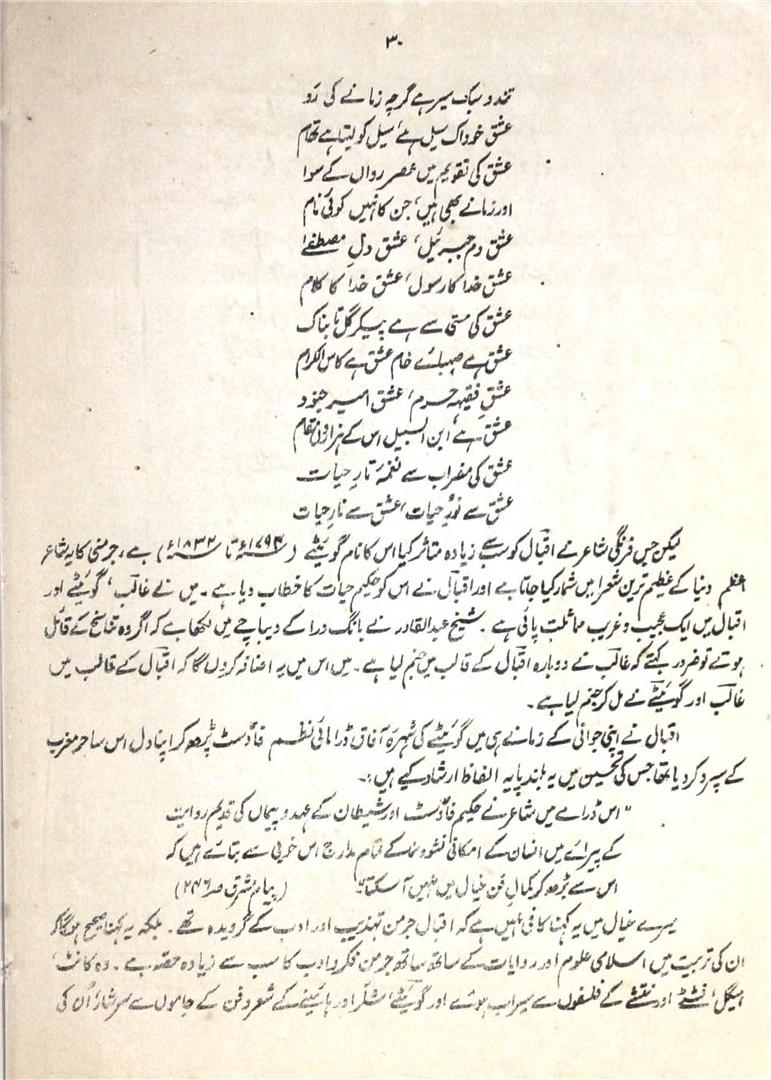 ۳۰
تند و سبک سیر ہے گرچہ زمانے کی رَو
عشق خود اک سیل ہے، سیل کو لیتا ہے تھام
عشق کی تقویم میں عصرِ رواں کے سوا
اور زمانے بھی ہیں، جن کا نہیں کوئی نام
عشق دم جبرئیل، عشق دلِ مصطفےٰ
عشق خدا کا رسول، عشق خدا کا کلام
عشق کی مستی سے ہے پیکر گل تابناک
عشق ہے صہبائے خام عشق ہے کاس الکرام
عشق فقیہہ حرم، عشق امیر جنود
عشق ہے ابن السبیل اس کے ہزاروں مقام
عشق کی مضراب سے نغمۂ تارِ حیات
عشق سے نورِ حیات، عشق سے نارِ حیات
لیکن جس فرنگی شاعر نے اقبال کو سب سے زیادہ متاثر کیا اس کا نام گوئٹے ( تا ۱۸۳۲ء) ہے، جرمنی کا یہ شاعر
اعظم دنیا کے عظیم ترین شعرا میں شمار کیا جاتا ہے اور اقبال نے اس کو حکیم حیات کا خطاب دیا ہے۔ میں نے غالب، گوئٹے اور
اقبال میں ایک عجیب و غریب مماثلت پائی ہے۔ شیخ عبدالقادر نے بانگ درا کے دیباچے میں لکھا ہے کہ اگر وہ تناسخ کے قائل
ہوتے تو ضرور کہتے کہ غالب نے دوبارہ اقبال کے قالب میں جنم لیا ہے۔ میں اس میں یہ اضافہ کروں گا کہ اقبال کے قالب میں
غالب اور گوئٹے نے مل کر جنم لیا ہے۔
اقبال نے اپنی جوانی کے زمانے ہی میں گوئٹے کی شہرۂ آفاق ڈرامائی نظم فاؤسٹ پڑھ کر اپنا دل اس ساحر مغرب
کے سپرد کر دیا تھا جس کی تحسین میں یہ بلند پایہ الفاظ ارشاد کیے ہیں:۔
"اس ڈرامے میں شاعر نے حکیم فاؤسٹ اور شیطان کے عہد و پیماں کی قدیم روایت
کے پیرائے میں انسان کے امکانی نشو و نما کے تمام مدارج اس خوبی سے بتائے ہیں کہ
اس سے بڑھ کر کمالِ فن خیال میں نہیں آ سکتا" (پیام مشرق صہ ۲۴۶)
میرے خیال میں یہ کہنا کافی نہیں ہے کہ اقبال جرمن تہذیب اور ادب کے گرویدہ تھے۔ بلکہ یہ کہنا صحیح ہوگا کہ
ان کی تربیت میں اسلامی علوم اور روایات کے ساتھ ساتھ جرمن فکر و ادب کا سب سے زیادہ حصہ ہے۔ وہ کانٹ،
ہیگل، فشٹے اور نتشے کے فلسفوں سے سیراب ہوئے اور گوئٹے، شلر اور ہائینے کے شعر و فن کے جاموں سے سرشار، اُن کی